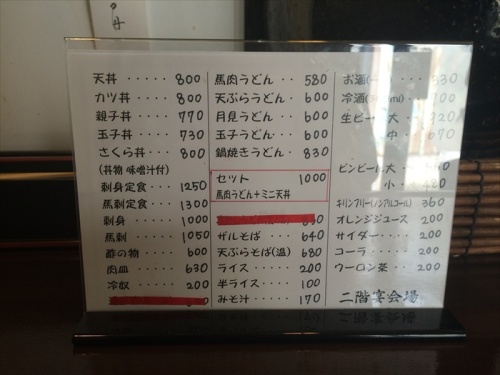 天丼 ・・・・・ 800
カツ丼 ・・・・ 800
親子丼 ・・・・ 770
玉子丼 ・・・・ 730
さくら丼 ・・・ 800
(丼物 味噌汁付)
刺身定食 ・・・ 1250
馬刺定食 ・・・ 1300
刺身 ・・・・・ 1000
馬刺 ・・・・・ 1050
酢の物 ・・・・ 600
肉皿 ・・・・・ 630
冷奴 ・・・・・ 200
馬肉うどん ・・ 580
天ぷらうどん ・ 600
月見うどん ・・ 600
玉子うどん ・・ 600
鍋焼きうどん ・ 830
セット 1000
馬肉うどん+ミニ天丼
ザルそば ・・・ 640
天ぷらそば(温) 680
ライス ・・・・ 200
半ライス ・・・ 100
みそ汁 ・・・・ 170
お酒
冷酒
生ビール 大
中 ・ 670
ビンビール 大
小 ・ 480
キリンフリー(ノンアルコール) 360
オレンジジュース 200
サイダー ・・・ 200
コーラ ・・・・ 200
ウーロン茶 ・・ 200
二階宴会場